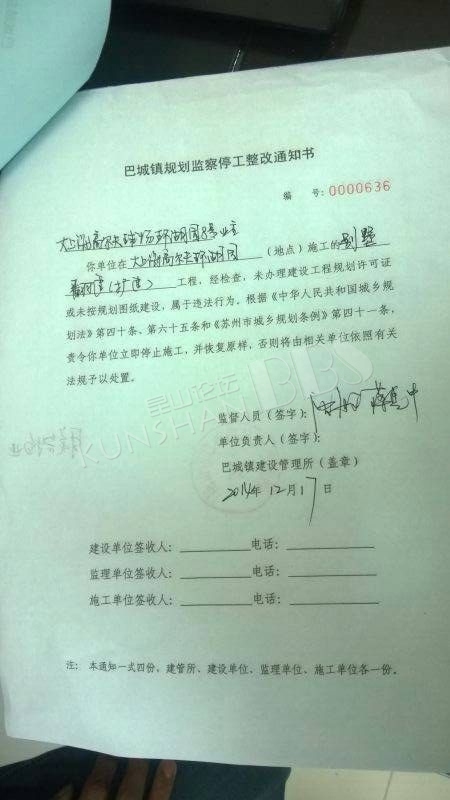 巴城镇规划监察停工整改通知书
编 号:0000636
大上海高尔夫球场环湖园8号业主
你单位在大上海高尔夫环湖园(地点)施工的别墅
翻建(扩建)工程,经检查,未办理建设工程规划许可证
或未按规划图纸建设,属于违法行为。根据《中华人民共和国城乡规
划法》第四十条、第六十五条和《苏州市城乡规划条例》第四十一条,
责令你单位立即停止施工,并恢复原样,否则将由相关单位依照有关
法规予以处置。
昆山论坛
KUNSHAN BBS
监督人员(签字):
单位负责人(签字):
巴城镇建设管理所(盖章)
2014年12月17日
建设单位签收人: 电话:
监理单位签收人: 电话:
施工单位签收人: 电话:
注: 本通知一式四份,建管所、建设单位、监理单位、施工单位各一份。